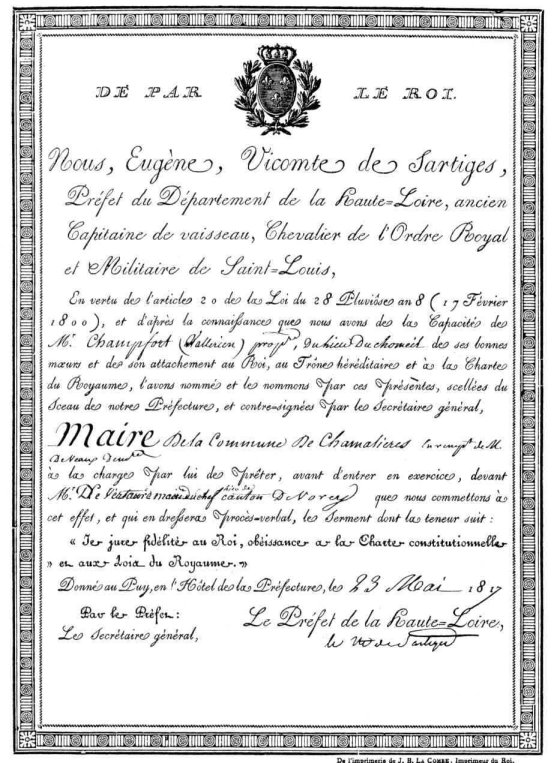 DE PAR LE ROI.
Nous, Eugène, Vicomte de Sartiges,
Préfet du Département de la Haute=Loire, ancien
Capitaine de vaisseau, Chevalier de l'Ordre Royal
et Militaire de Saint=Louis,
En vertu de l'article 20 de la Loi du 28 Pluviôse an 8 (17 Février
1800), et d'après la connaissance que nous avons de la Capacité de
M.r Champfort (Vallerien) prop.re, du lieu Duchomeil de ses bonnes
mœurs et de son attachement au Roi, au Trône héréditaire et à la Charte
du Royaume, l'avons nommé et le nommons par ces présentes, scellées du
Sceau de notre Préfecture, et contre=signées par le Secrétaire général,
Maire De la Commune De Chamalieres en rempt de M.
à la charge par lui de prêter, avant d'entrer en exercice, devant
M.r De maire du chef lieu de canton De Vorey que nous commettons à
cet effet, et qui en dressera procès=verbal, le Serment dont la teneur suit :
« Je jure fidélité au Roi, obéissance a la Charte constitutionnelle
» et aux Loix du Royaume. »
Donné au Puy, en l'Hôtel de la Préfecture, le 23 Mai 1817
Par le Préfet :
Le Secrétaire général,
Le Préfet de la Haute=Loire,
le Vte de Sartiges
De l'imprimerie de J. B. LA COMBE, Imprimeur du Roi.